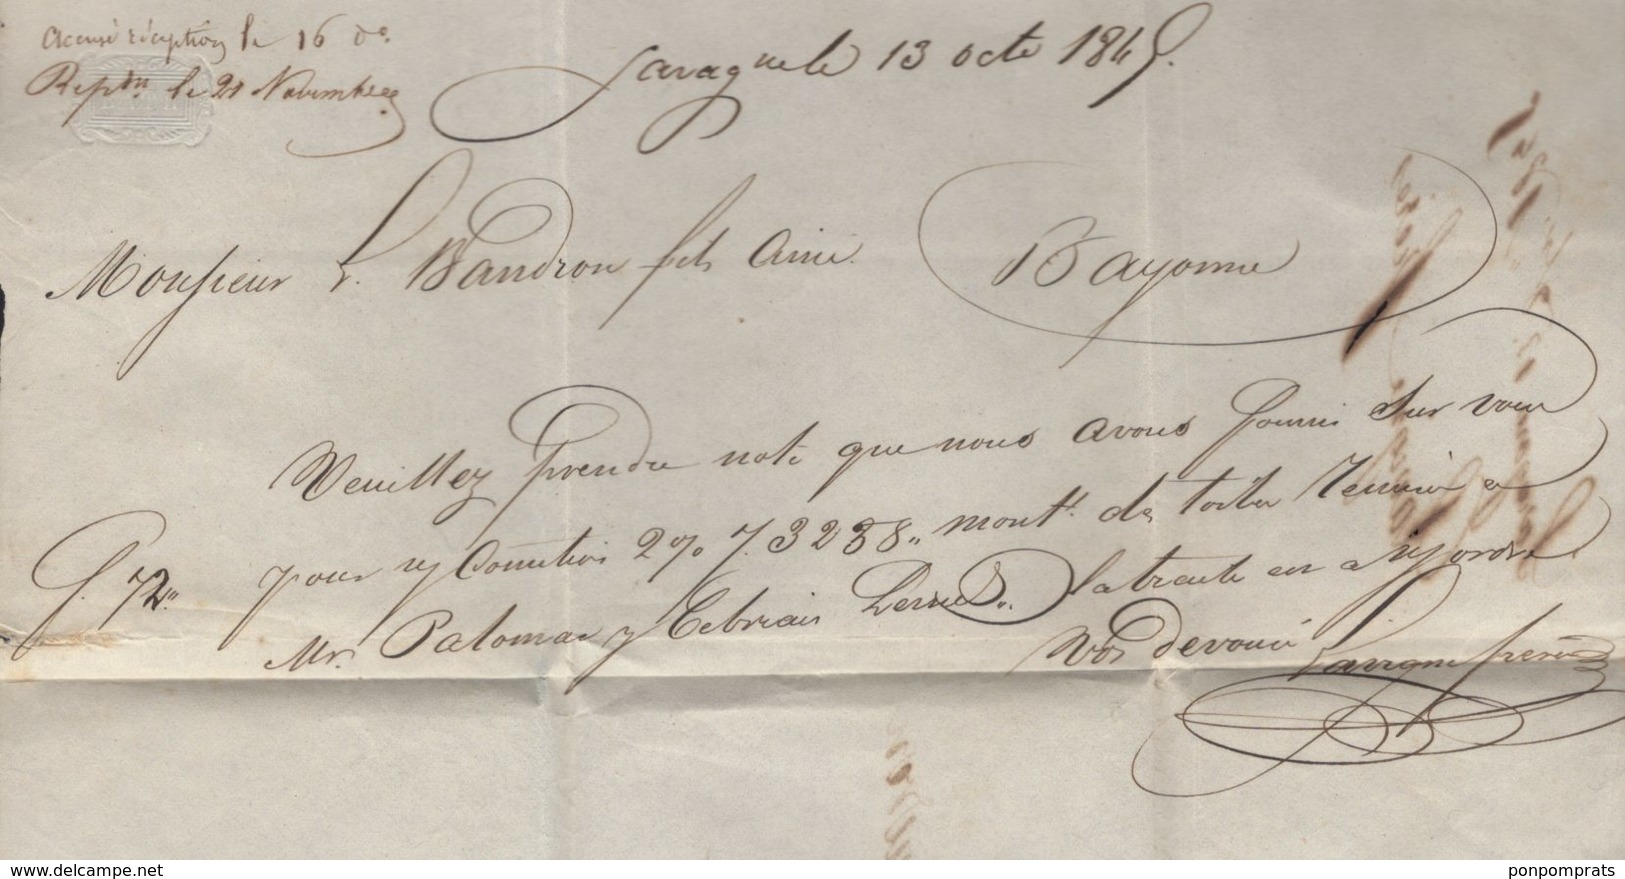 accusé réception le 16 do.
Rep.du le 21 Novembre
Saragne le 13 octe 1845.
Monsieur L. Baudron fils Ainé. Bayonne
Veuillez prendre note que nous avons fourni sur vous
P. 72" pour n/ 2% f. 3238" mont. de
Mr. Palomar y Cebrian la traite en a n/ ordre
Vos Dévoués Lavigne frères
www.delcampe.net
ponpomprats